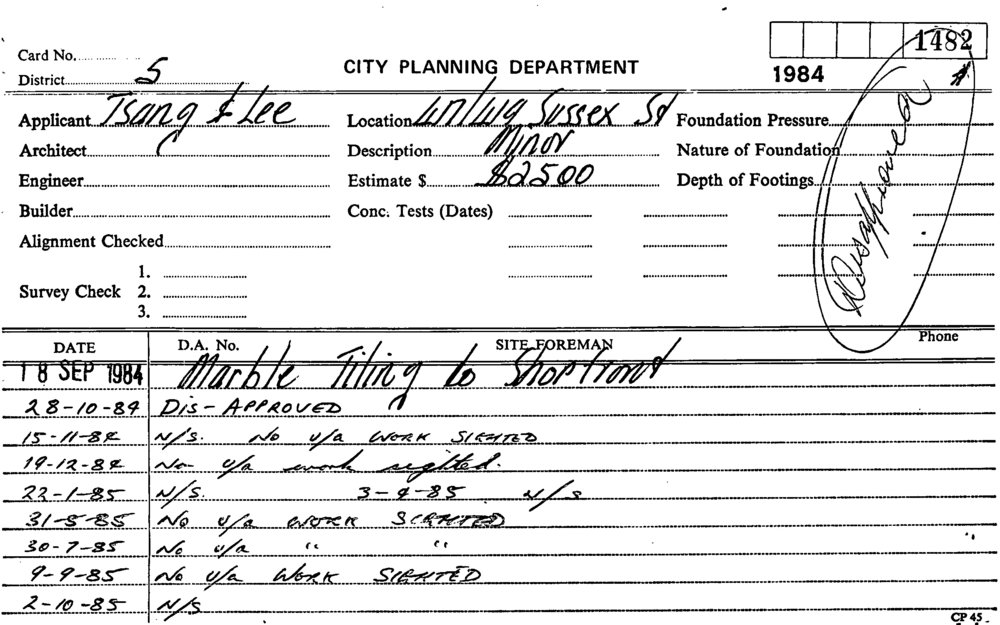 1482
Card No.
District 5
CITY PLANNING DEPARTMENT
1984
Applicant Tsang & Lee
Location 417/419 Sussex St
Foundation Pressure
Architect
Description Minor
Nature of Foundation
Engineer
Estimate $ $2500
Depth of Footings
Disapproved
Builder
Conc. Tests (Dates)
Alignment Checked
1.
Survey Check 2.
3.
Phone
DATE D.A. No. SITE FOREMAN
18 SEP 1984 Marble Tiling to Shopfront
28-10-84 DIS-APPROVED
15-11-84 N/S. No u/a WORK SIGHTED
19-12-84 No u/a work sighted.
22-1-85 N/S. 3-4-85 N/S
31-5-85 No u/a WORK SIGHTED
30-7-85 No u/a " "
9-9-85 No u/a WORK SIGHTED
2-10-85 N/S
CP 45